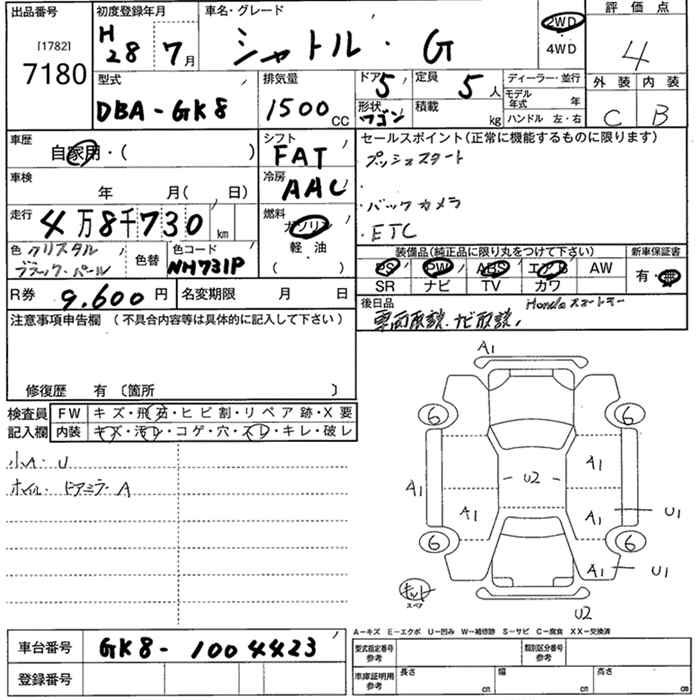 出品番号 初度登録年月 車名・グレード 評価点
[1782]
7180
H 28 7月
シャトル・G
2WD
4WD
4
型式 排気量 ドア 5 定員 5人 ディーラー・並行 外装 内装
DBA-GK8 1500cc
形状 ワゴン 積載 kg
モデル年式 年
ハンドル 左・右
C B
車歴 自家用・( )
シフト FAT
セールスポイント(正常に機能するものに限ります)
・プッシュスタート
車検 年 月( 日)
冷房 AAC
・バックカメラ
・ETC
走行 4万8千730km
燃料 ガソリン 軽・油 ( )
色 クリスタルブラック・パール 色替 色コード NH731P
装備品(純正品に限り丸をつけて下さい) 新車保証書
PS PW ABS エアB AW 有・無
SR ナビ TV カワ
R券 9,600円 名変期限 月 日
後日品 Honda スマートキー
車両取説、ナビ取説
注意事項申告欄(不具合内容等は具体的に記入して下さい)
修復歴 有 〔箇所 〕
検査員記入欄 FW キズ・飛石・ヒビ割・リペア跡・X要
内装 キズ・汚レ・コゲ・穴・スレ・キレ・破レ
小A・U
ホイル・ドアミラ A
A1
6 6
A1
U2
A1
A1 A1 U1
6 6
A1 U1
スペア
U2
A−キズ E−エクボ U−凹み W−補修跡 S−サビ C−腐食 XX−交換済
車台番号 GK8-1004423
登録番号
型式指定番号 参考 類別区分番号 参考
車庫証明用 参考 長さ cm 幅 cm 高さ cm